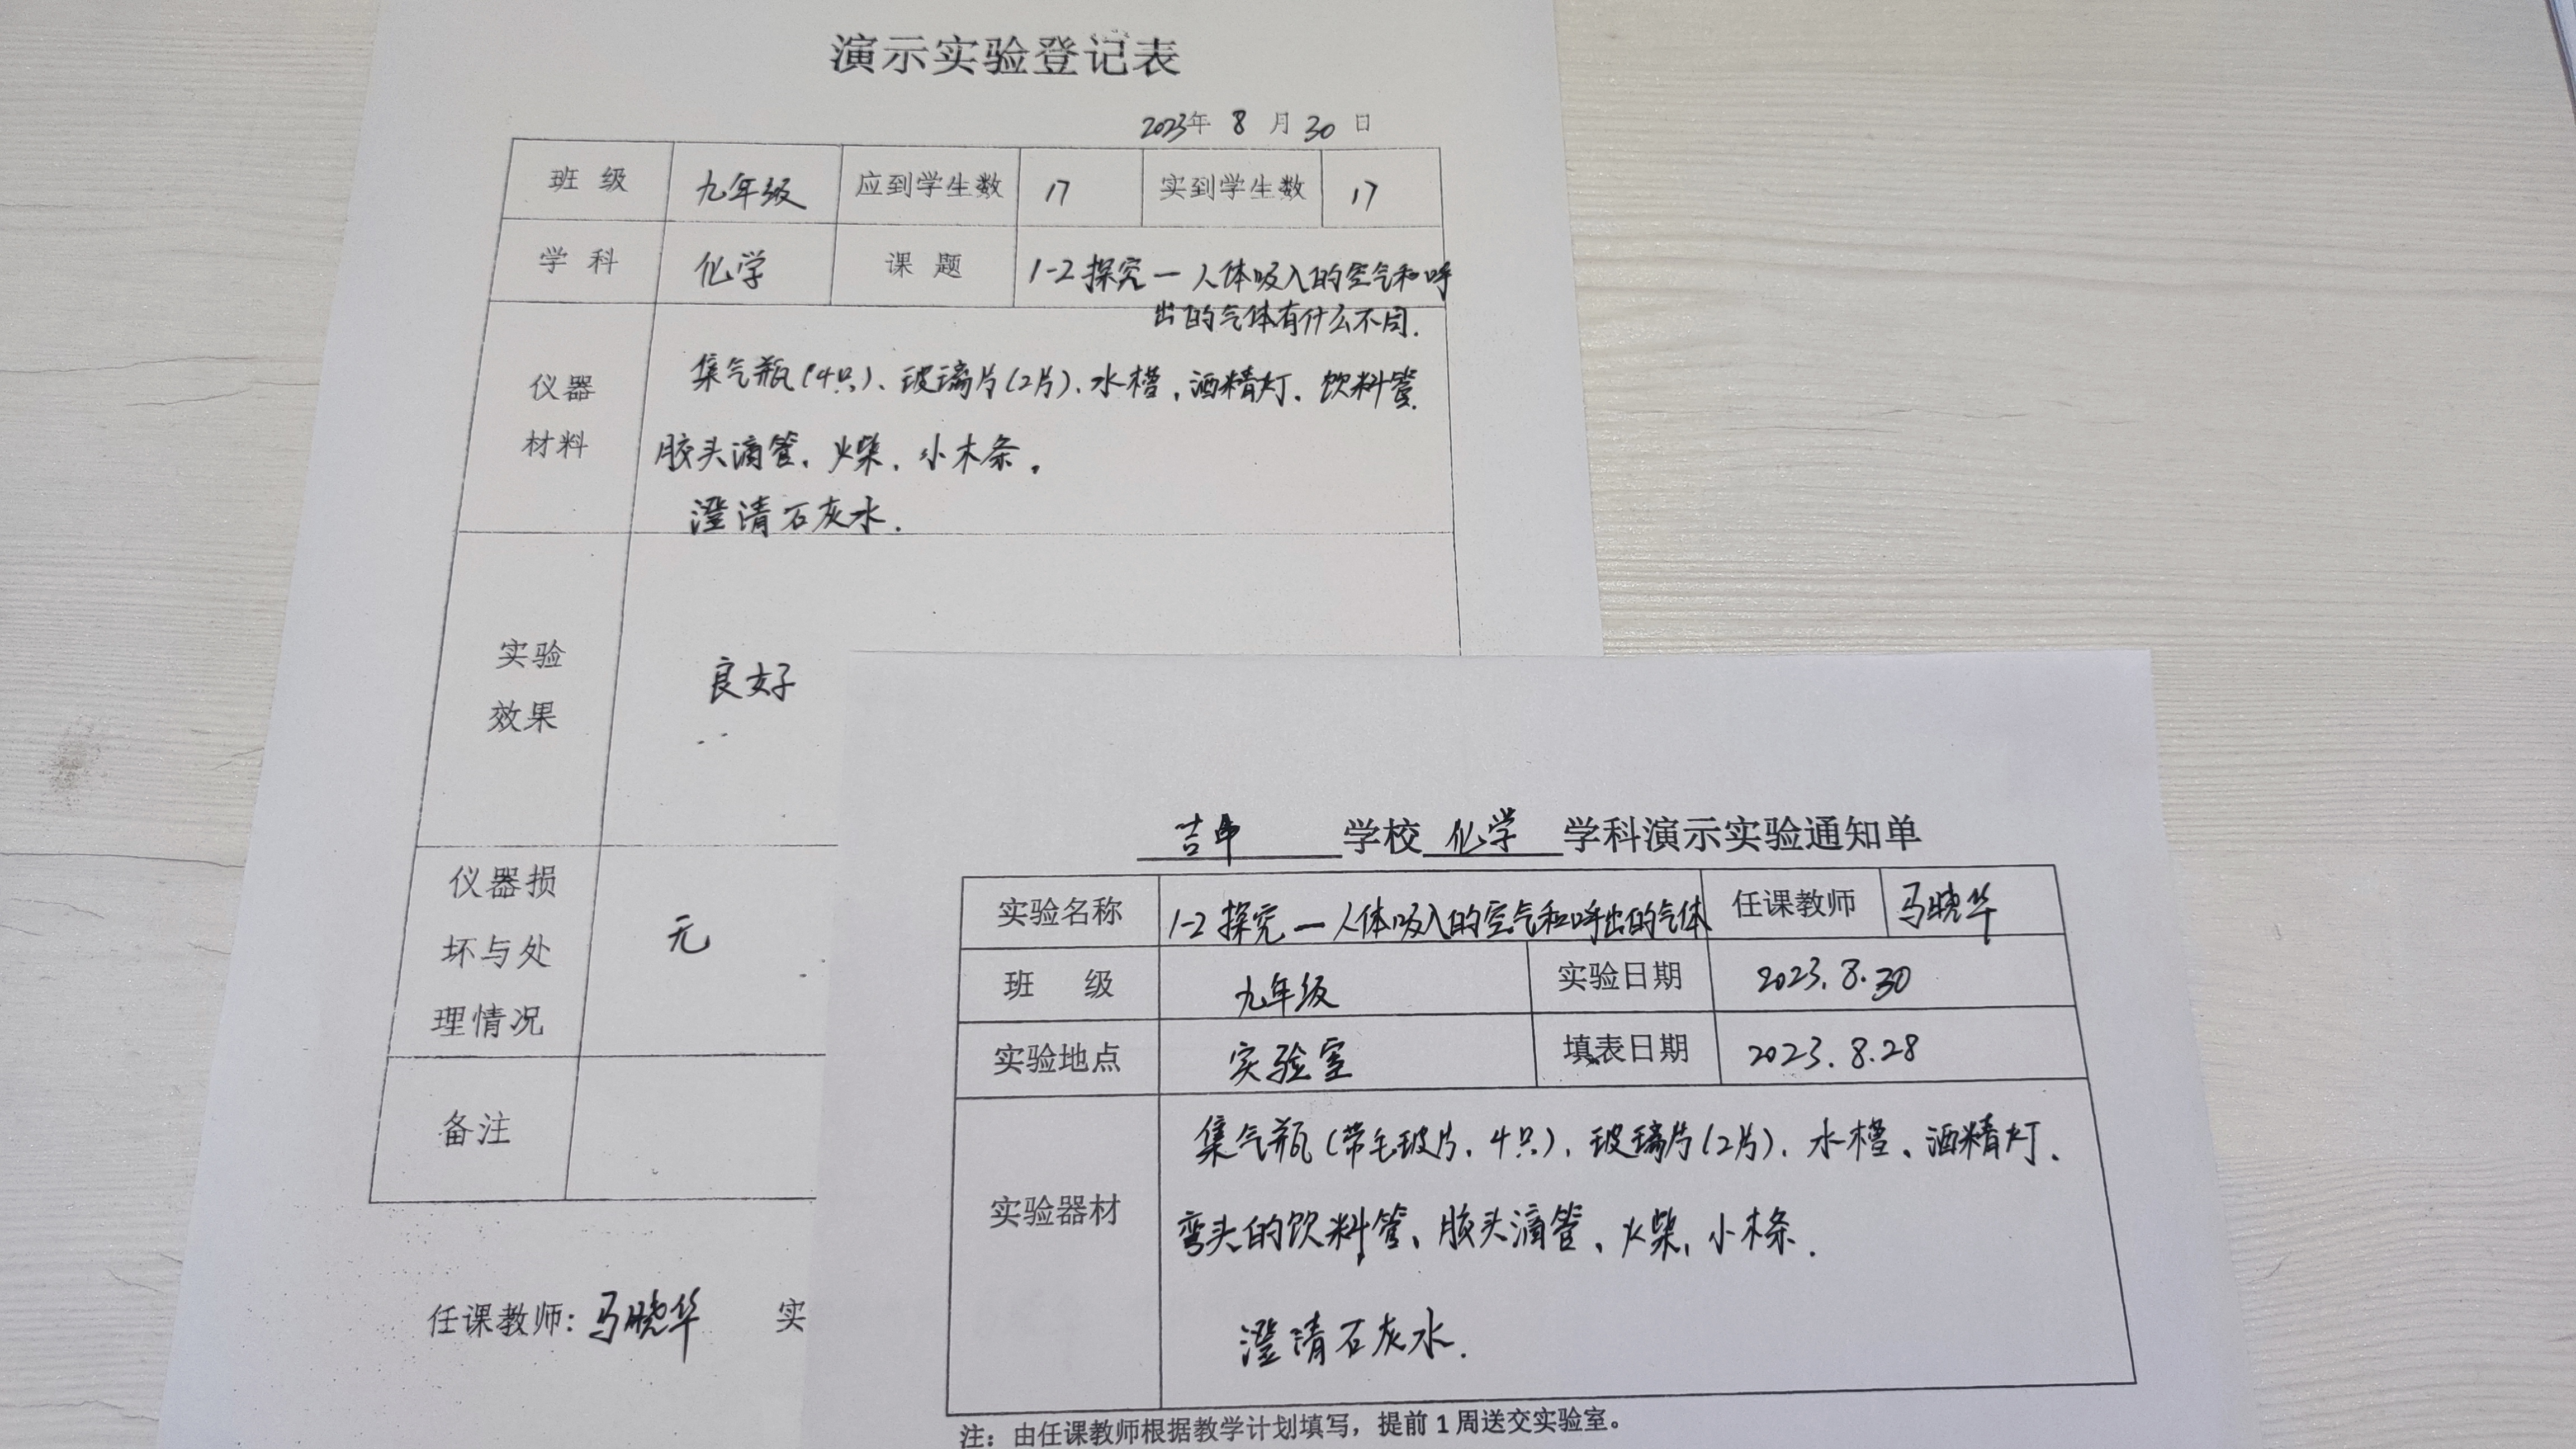 演示实验登记表
2023年 8 月 30 日
班 级 九年级 应到学生数 17 实到学生数 17
学 科 化学 课 题 1-2 探究一 人体吸入的空气和呼
出的气体有什么不同.
仪器
材料
集气瓶(4只)、玻璃片(2片)、水槽、酒精灯、饮料管、
胶头滴管、火柴、小木条。
澄清石灰水.
实验
效果
良好
仪器损
坏与处
理情况
无
备注
任课教师: 马晓华 实
学校 化学 学科演示实验通知单
实验名称 1-2 探究一 人体吸入的空气和呼出的气体 任课教师 马晓华
班 级 九年级 实验日期 2023.8.30
实验地点 实验室 填表日期 2023.8.28
实验器材
集气瓶(带毛玻片、4只)、玻璃片(2片)、水槽、酒精灯、
弯头的饮料管、胶头滴管、火柴、小木条.
澄清石灰水.
注：由任课教师根据教学计划填写，提前1周送交实验室。